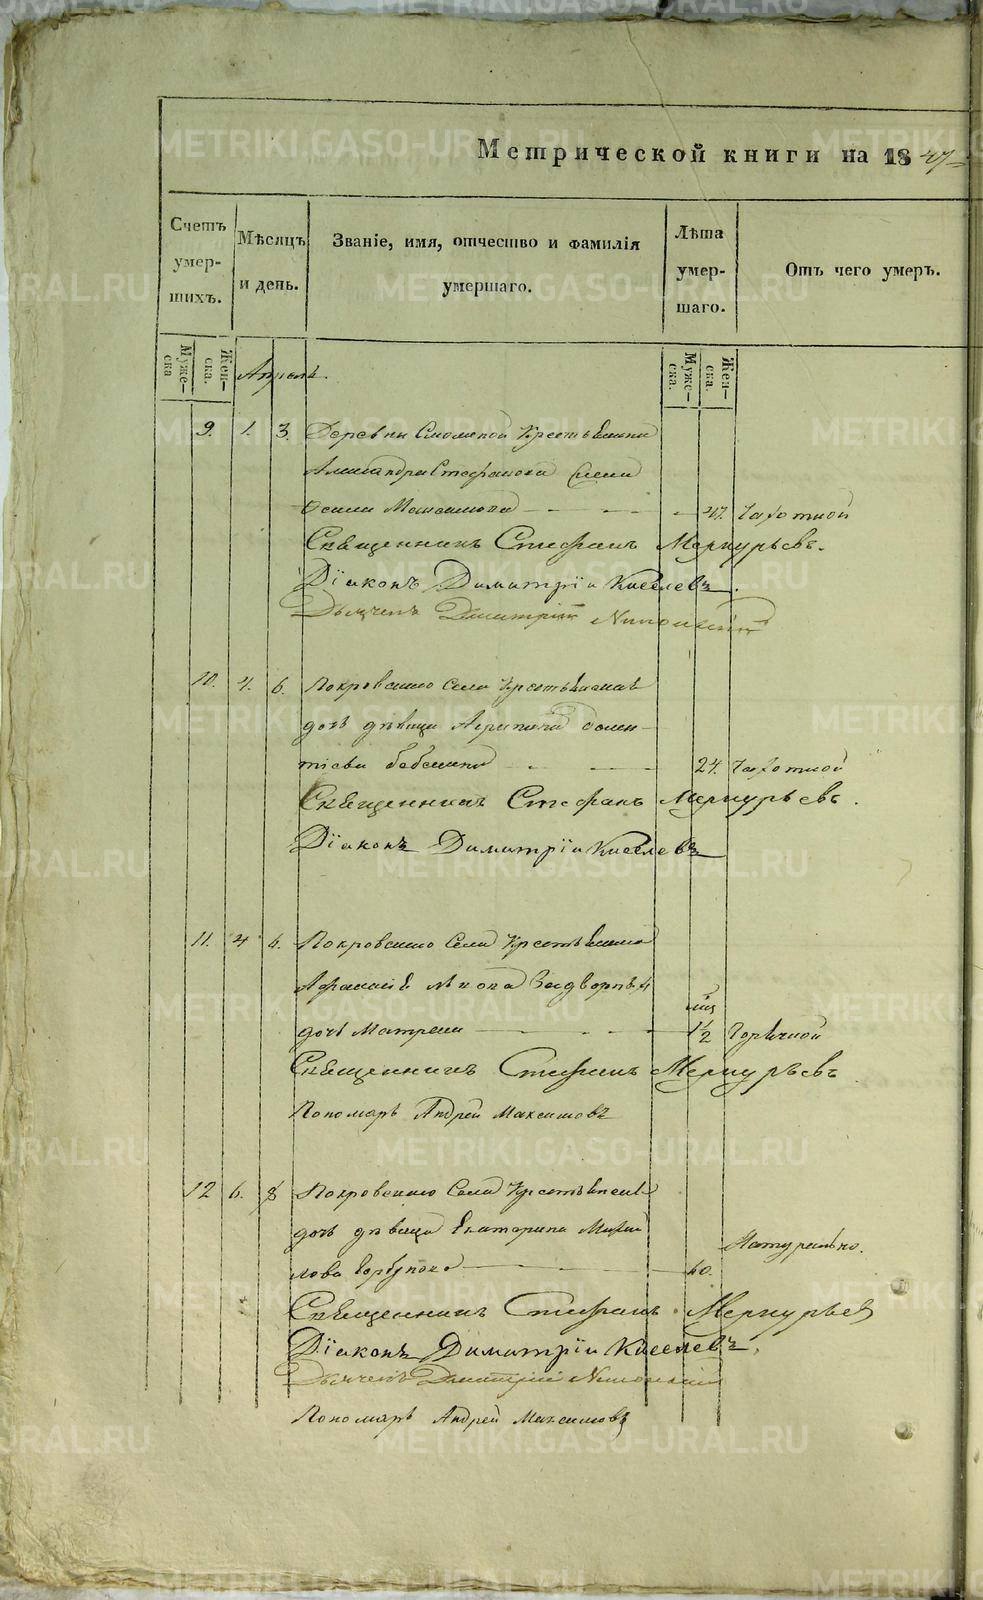 Метрической книги на 1847
Счетъ умершихъ.
Мѣсяцъ и день.
Званіе, имя, отчество и фамилія умершаго.
Лѣта умершаго.
Отъ чего умеръ.
Муже-ска
Жен-ска.
Апрель.
Муже-ска.
Жен-ска.
9. 1. 3. Деревни Крестьянина
Стефанова
Осипа Максимова 47. Чахоткой
Священникъ Стефанъ Меркурьевъ.
Діаконъ Димитрій Киселевъ.
Дьячекъ Дмитрій
10. 4. 6. Покровскаго Села Крестьянина
дочь дѣвица Агрипина
24. Чахоткой
Священникъ Стефанъ Меркурьевъ.
Діаконъ Димитрій Киселевъ
11. 4 6. Покровскаго Села Крестьянина
мц
дочь Матрена 1½ Горячкой
Священникъ Стефанъ Меркурьевъ
Пономарь Андрей Максимовъ
12 6. 8 Покровскаго Села Крестьянина
дочь дѣвица Екатерина
Горбунова 60. Натурально.
Священникъ Стефанъ Меркурьев
Діаконъ Димитрій Киселевъ.
Дьячекъ Дмитрій
Пономарь Андрей Максимовъ
METRIKI.GASO-URAL.RU